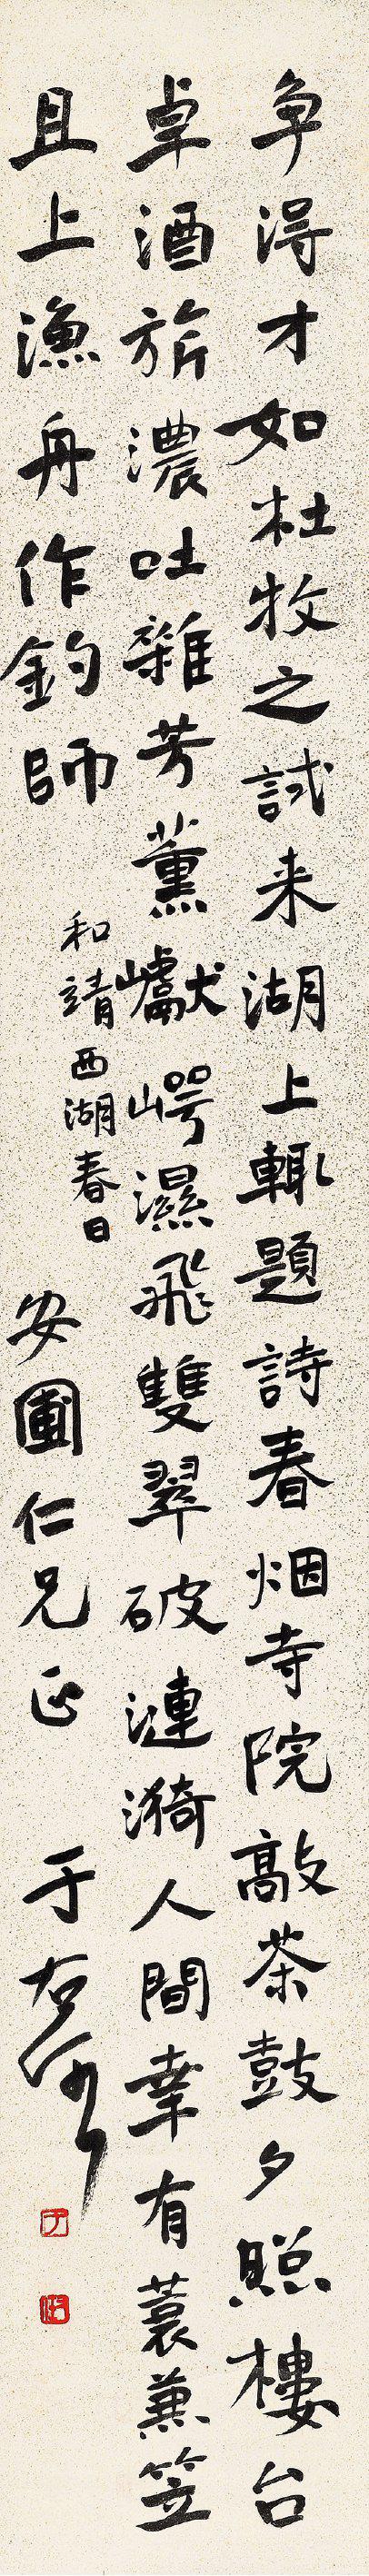 争得才如杜牧之試来湖上輒題詩春烟寺院敲茶鼓夕照樓台
卓酒旂濃吐雜芳薰巘崿濕飛雙翠破漣漪人間幸有蓑兼笠
且上漁舟作釣師
和靖西湖春日
安圃仁兄正
于右任